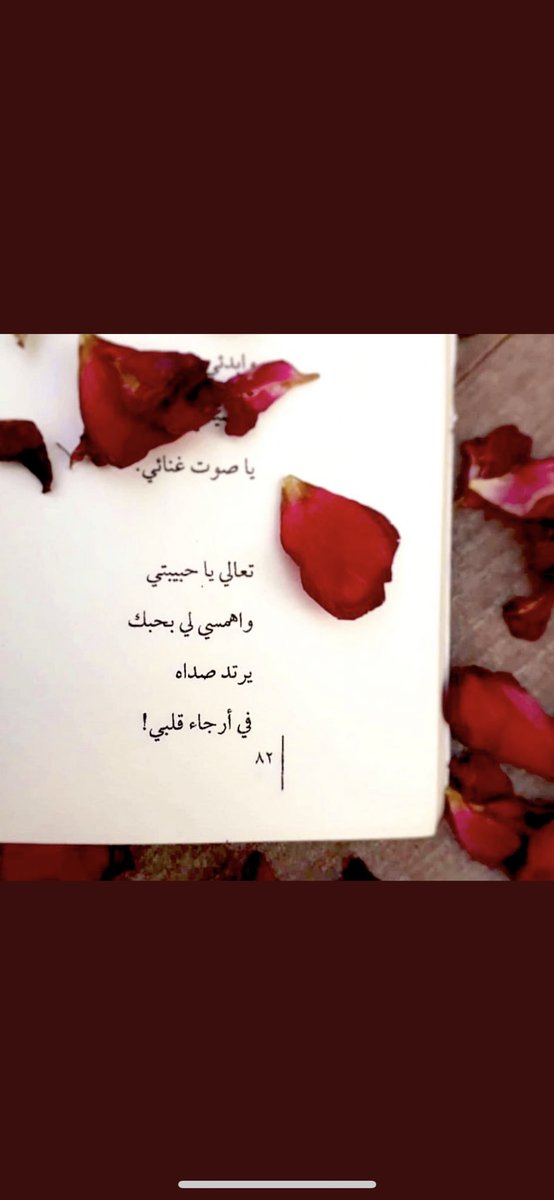 وابدئي
يا صوت غنائي.
تعالي يا حبيبتي
واهمسي لي بحبك
يرتد صداه
في أرجاء قلبي!
٨٢